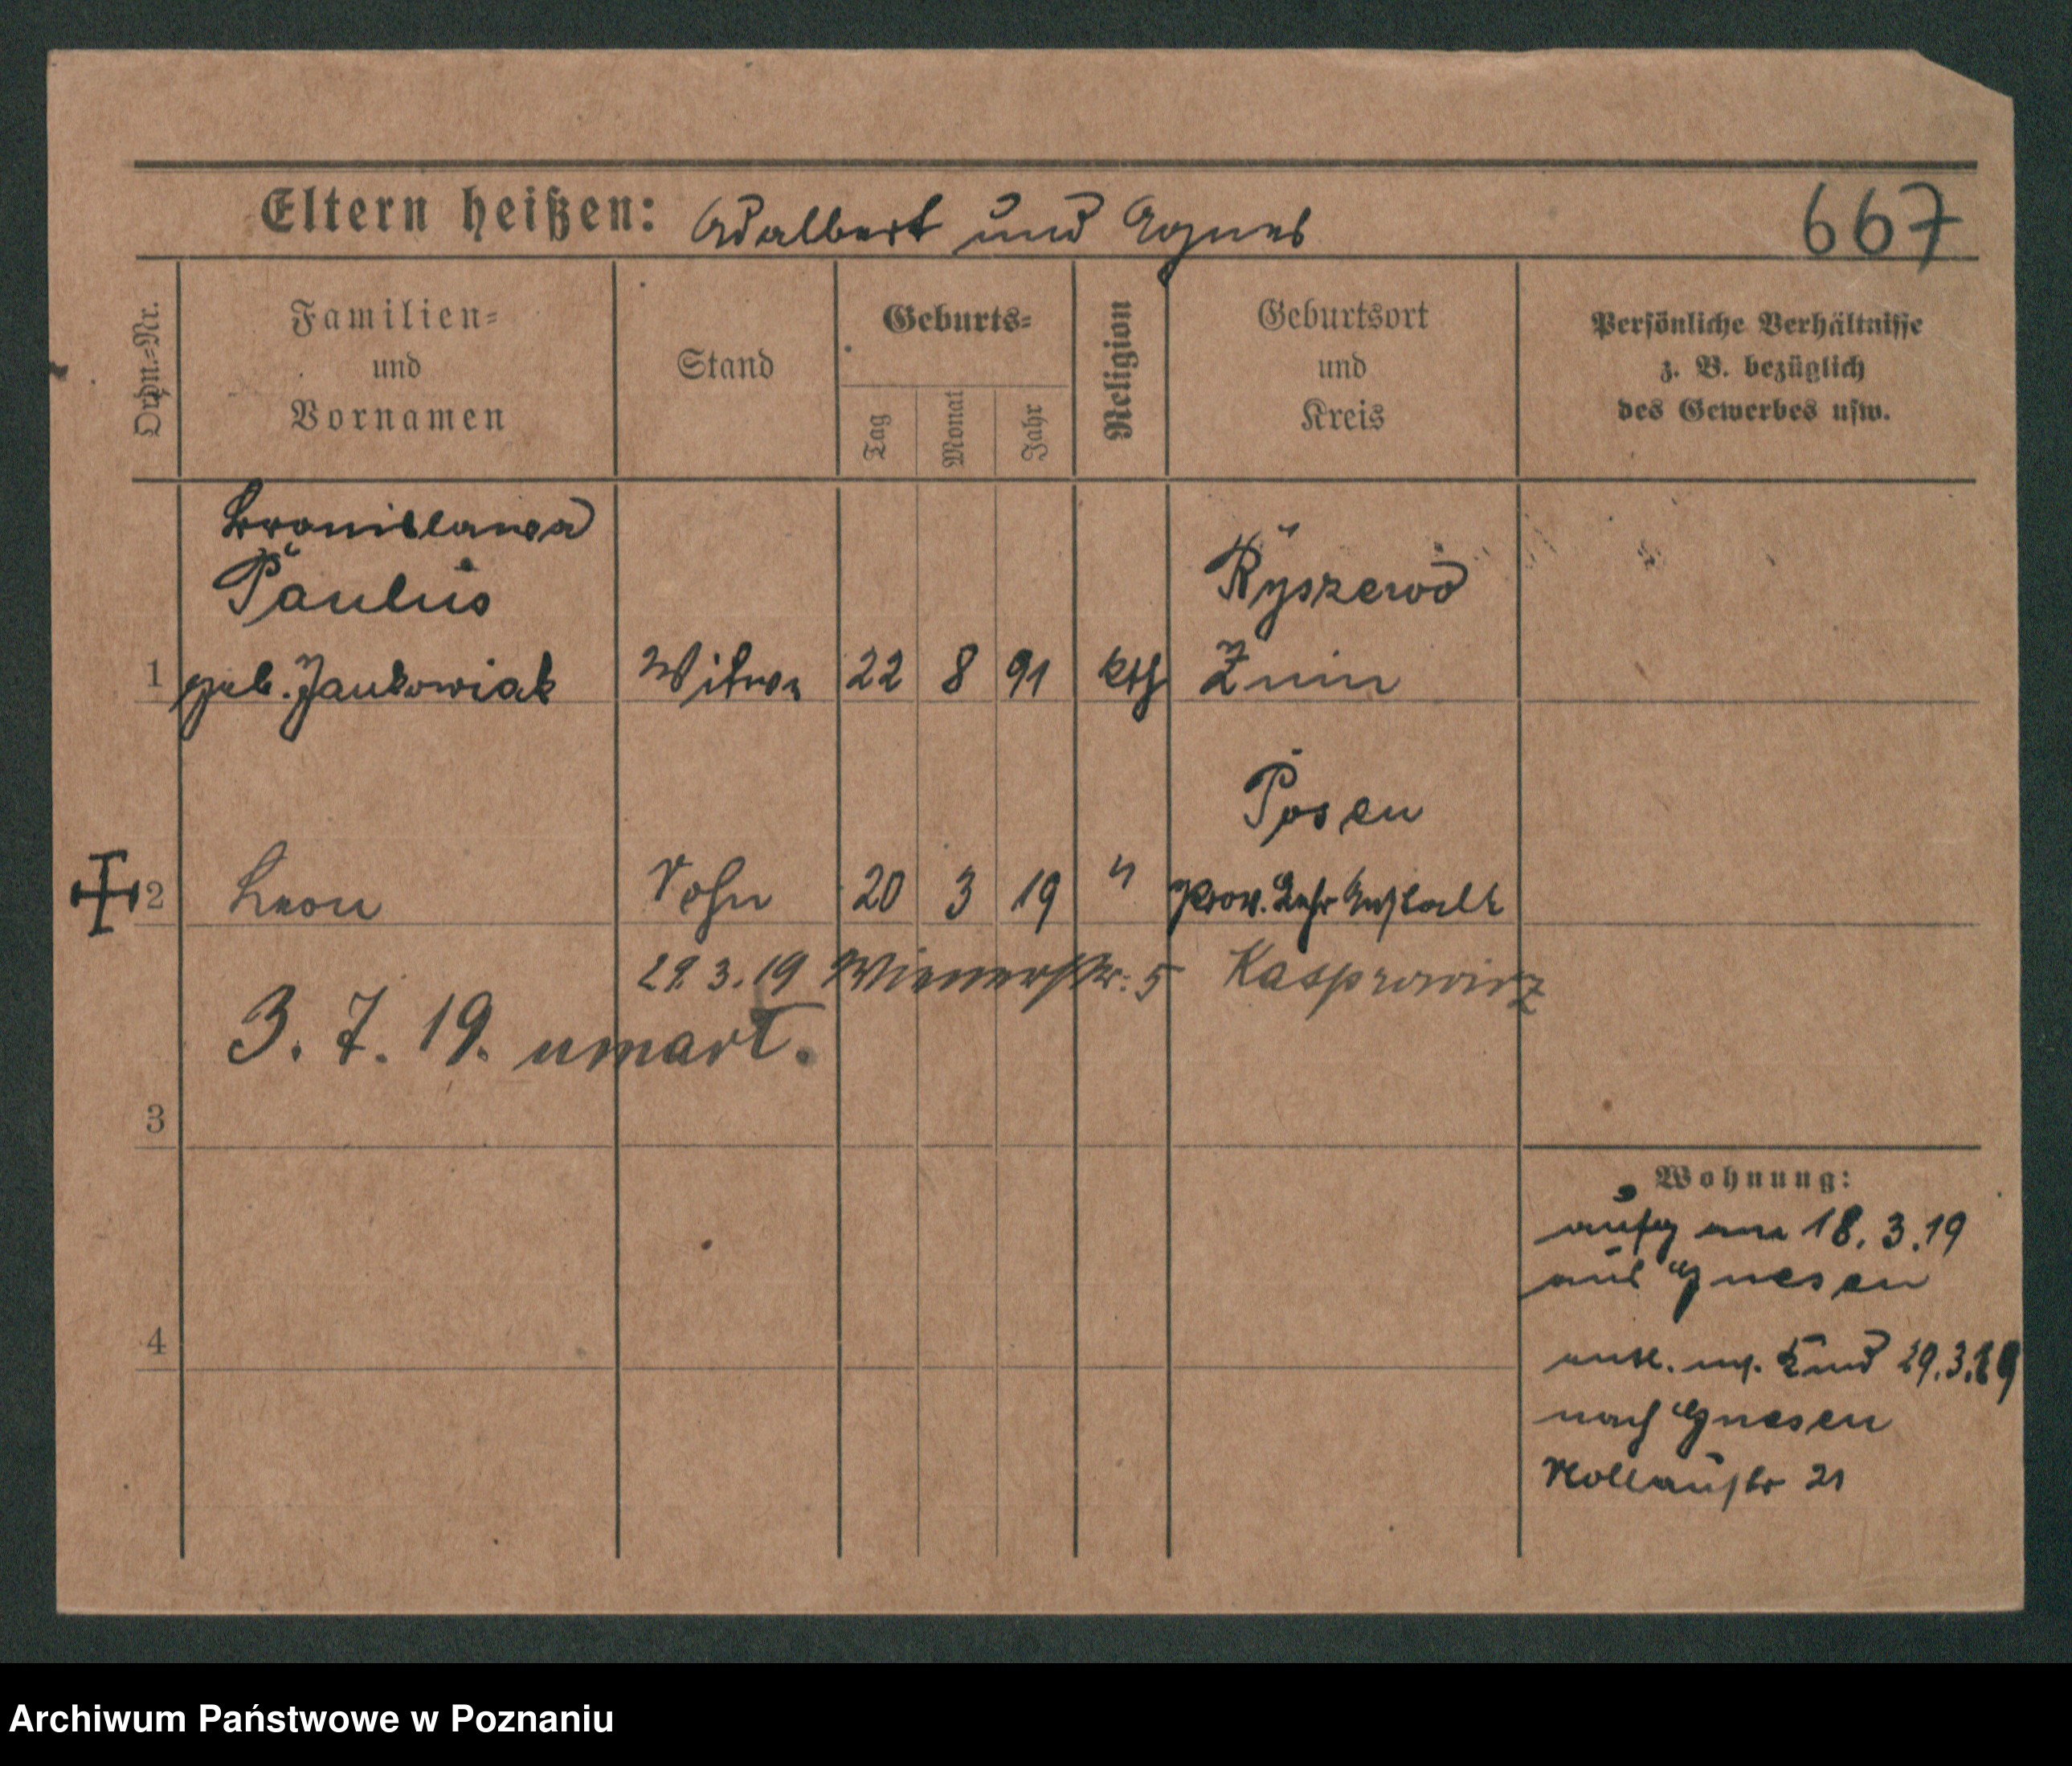 Eltern heißen: Adalbert und Agnes 667
Ordn.=Nr.
Familien=
und
Vornamen
Stand
Geburts=
Tag
Monat
Jahr
Religion
Geburtsort
und
Kreis
Persönliche Verhältnisse
z. B. bezüglich
des Gewerbes usw.
Bronislawa
Paulus
1 geb. Jankowiak Witwe 22 8 91 kth
Ryszewo
Znin
Posen
2 Leon Sohn 20 3 19 " Prov. Lehr Anstalt
29.3.19 Wienerstr. 5 Kasprowicz
3. 7. 19. umarł.
3
4
Wohnung:
aufg am 18.3.19
aus Gnesen
entl. m. Kind 29.3.19
nach Gnesen
21
Archiwum Państwowe w Poznaniu